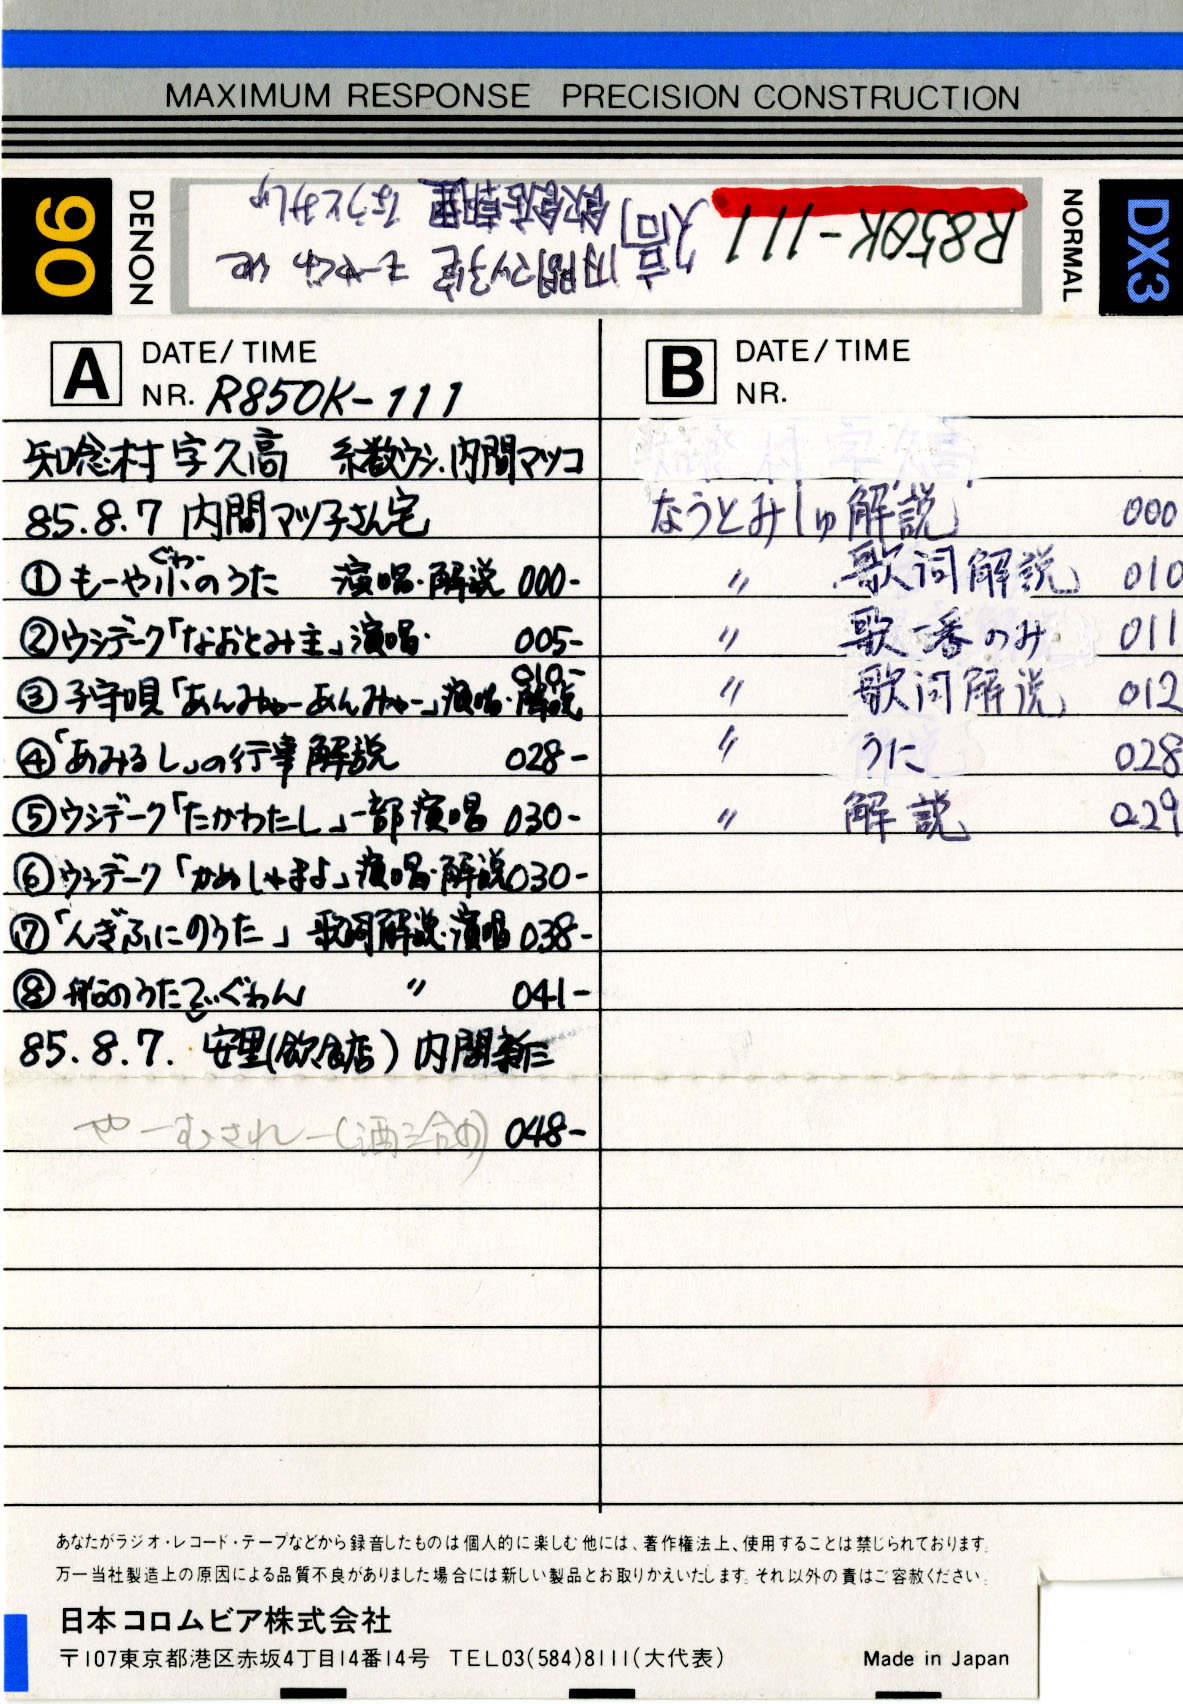 MAXIMUM RESPONSE PRECISION CONSTRUCTION
90
DENON
R850K-111
久高 内間マツ子宅 もーやぐゎ 他
飲食店 なうとみしゅ
NORMAL
DX3
A DATE/TIME
NR. R850K-111
知念村字久高 糸数ウシ、内間マツコ
85.8.7 内間マツ子さん宅
ぐゎー
①もーや小のうた 演唱・解説 000-
②ウシデーク「なおとみ主」演唱・ 005-
010-
③子守唄「あんみゃーあんみゃー」演唱・解説
④「あみるし」の行事解説 028-
⑤ウシデーク「たかわたし」一部演唱 030-
⑥ウシデーク「かめしゃまよ」演唱・解説 030-
⑦「んぎふにのうた」歌詞解説・演唱 038-
⑧船のうた でぃぐわん 〃 041-
85.8.7. 安里(飲食店) 内間新三
やーむされー(酒 048-
B DATE/TIME
NR.
知念村字久高
なうとみしゅ解説 000
〃 歌詞解説 010
〃 歌一番のみ 011
〃 歌詞解説 012
〃 うに 028
〃 解説 029
あなたがラジオ・レコード・テープなどから録音したものは個人的に楽しむ他には、著作権法上、使用することは禁じられております。
万一当社製造上の原因による品質不良がありました場合には新しい製品とお取りかえいたします。それ以外の責はご容赦ください。
日本コロムビア株式会社
〒107東京都港区赤坂4丁目14番14号 TEL03(584)8111(大代表)
Made in Japan